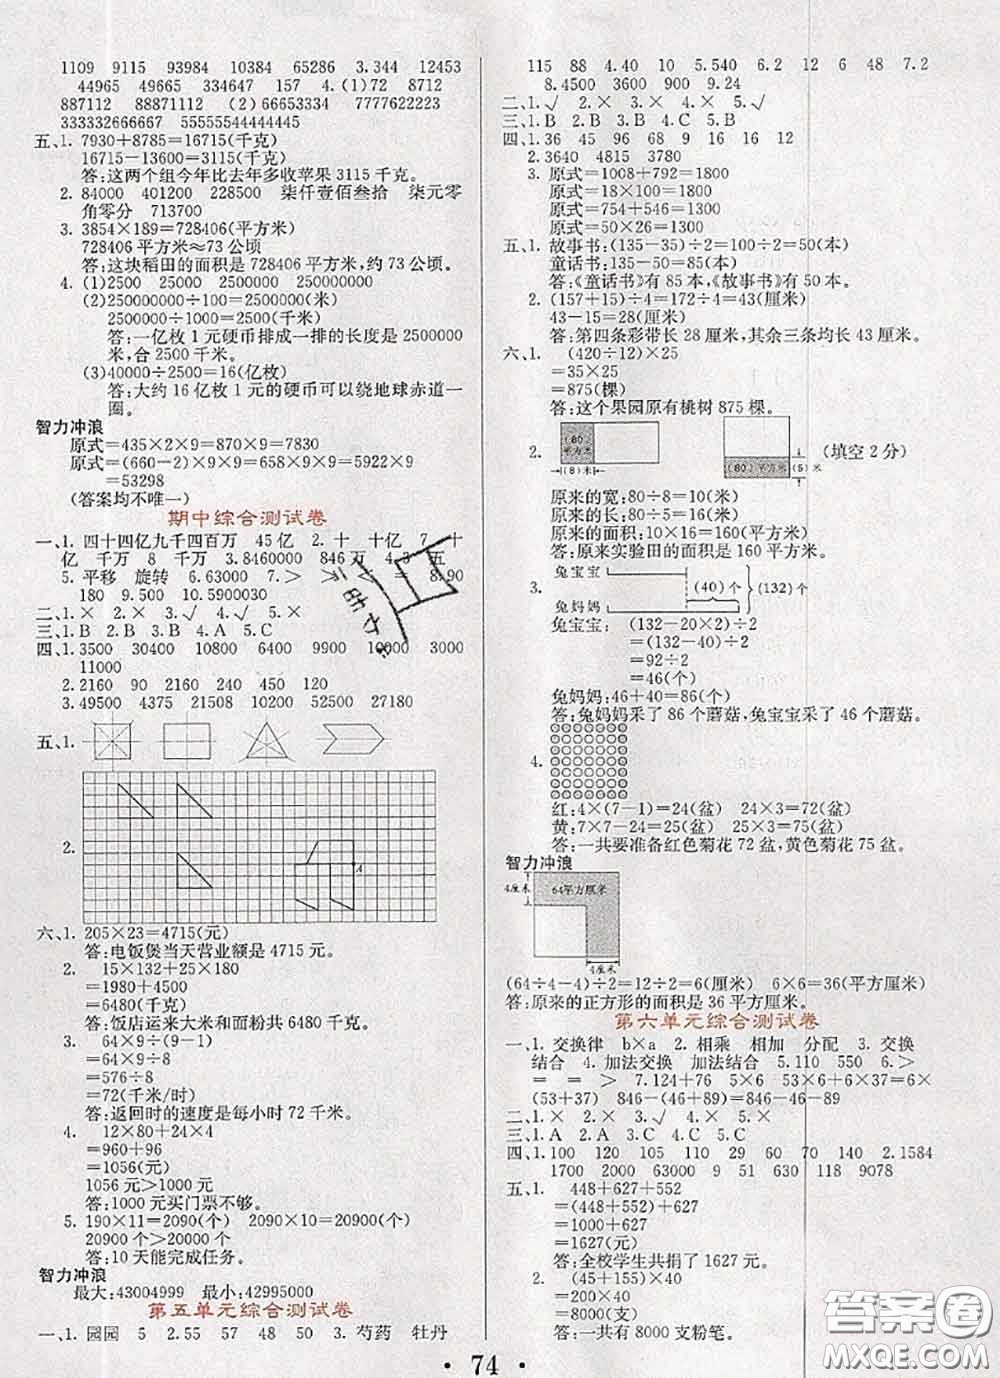 1109 9115 93984 10384 65286 3.344 12453
44965 49665 334647 157 4.(1)72 8712
887112 88871112 (2)66653334 7777622223
333332666667 55555544444445
五、1. 7930+8785=16715(千克)
16715-13600=3115(千克)
答:这两个组今年比去年多收苹果 3115 千克。
2. 84000 401200 228500 柒仟壹佰叁拾 柒元零
角零分 713700
3. 3854×189=728406(平方米)
728406 平方米≈73 公顷
答:这块稻田的面积是 728406 平方米,约 73 公顷。
4. (1)2500 25000 250000 250000000
(2)250000000÷100=2500000(米)
2500000÷1000=2500(千米)
答:一亿枚 1 元硬币排成一排的长度是 2500000
米,合 2500 千米。
(3)40000÷2500=16(亿枚)
答:大约 16 亿枚 1 元的硬币可以绕地球赤道一
圈。
智力冲浪
原式=435×2×9=870×9=7830
原式=(660-2)×9×9=658×9×9=5922×9
=53298
(答案均不唯一)
期中综合测试卷
一、1. 四十四亿九千四百万 45亿 2. 十 十亿 7 十
亿 千万 8 千万 3.8460000 846万 4.3 五
5. 平移 旋转 6.63000 7.> > < = 8.90
180 9.500 10.5900030
二、1.× 2.× 3.√ 4.√ 5.×
三、1.B 2.B 3.B 4.A 5.C
四、1.3500 30400 10800 6400 9900 10000 3000
11000
2.2160 90 2160 240 450 120
3.49500 4375 21508 10200 52500 27180
五、1.
2.
A
六、1. 205×23=4715(元)
答:电饭煲当天营业额是 4715 元。
2. 15×132+25×180
=1980+4500
=6480(千克)
答:饭店运来大米和面粉共 6480 千克。
3. 64×9÷(9-1)
=64×9÷8
=576÷8
=72(千米/时)
答:返回时的速度是每小时 72 千米。
4. 12×80+24×4
=960+96
=1056(元)
1056 元>1000 元
答:1000 元买门票不够。
5. 190×11=2090(个) 2090×10=20900(个)
20900 个>20000 个
答:10 天能完成任务。
智力冲浪
最大:43004999 最小:42995000
第五单元综合测试卷
一、1. 园园 5 2.55 57 48 50 3. 芍药 牡丹
115 88 4.40 10 5.540 6.2 12 6 48 7.2
8.4500 3600 900 9.24
二、1.√ 2.× 3.× 4.× 5.√
三、1.B 2.B 3.C 4.A 5.C
四、1.36 45 96 68 9 16 16 12
2.3640 4815 3780
3. 原式=1008+792=1800
原式=18×100=1800
原式=754+546=1300
原式=50×26=1300
五、1. 故事书:(135-35)÷2=100÷2=50(本)
童话书:135-50=85(本)
答:《童话书》有 85 本,《故事书》有 50 本。
2. (157+15)÷4=172÷4=43(厘米)
43-15=28(厘米)
答:第四条彩带长 28 厘米,其余三条均长 43 厘米。
六、1. (420÷12)×25
=35×25
=875(棵)
答:这个果园原有桃树 875 棵。
2. (80)平方米 (8)米 (80)平方米 (5)米 (填空 2 分)
原来的宽:80÷8=10(米)
原来的长:80÷5=16(米)
原来的面积:10×16=160(平方米)
答:原来实验田的面积是 160 平方米。
3. 兔宝宝 (40)个 (132)个
兔妈妈
兔宝宝:(132-20×2)÷2
=(132-40)÷2
=92÷2
=46(个)
兔妈妈:46+40=86(个)
答:兔妈妈采了 86 个蘑菇,兔宝宝采了 46 个蘑菇。
4.
红:4×(7-1)=24(盆) 24×3=72(盆)
黄:7×7-24=25(盆) 25×3=75(盆)
答:一共要准备红色菊花 72 盆,黄色菊花 75 盆。
智力冲浪
4厘米 64平方厘米
4厘米
(64÷4-4)÷2=12÷2=6(厘米) 6×6=36(平方厘米)
答:原来的正方形的面积是 36 平方厘米。
第六单元综合测试卷
一、1. 交换律 b×a 2. 相乘 相加 分配 3. 交换
结合 4. 加法交换 加法结合 5.110 550 6.>
= = > 7.124+76 5×6 53×37 6×
(53+37) 846-(46+89) 846-46-89
二、1.× 2.× 3.√ 4.× 5.×
三、1.A 2.A 3.C 4.C 5.C
四、1.100 120 105 110 29 70 60 120 2.1584
1700 2000 63000 9 51 630 118 9078
五、1. 448+627+552
=(448+552)+627
=1000+627
=1627(元)
答:全校学生共捐了 1627 元。
2. (45+155)×40
=200×40
=8000(支)
答:一共有 8000 支粉笔。
· 74 ·
答案圈
MXQE.COM